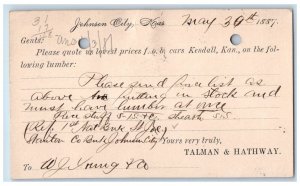 Johnson City, Kas. May 30th 1887.
Gents:
Please quote us lowest prices f. o. b. cars Kendall, Kan., on the
following lumber:
Please send price list as
above in stock and
must have lumber at once
Ref. 1st Nat Bank
Johnson City Yours very truly,
TALMAN & HATHWAY.
To W. J. Young & Co